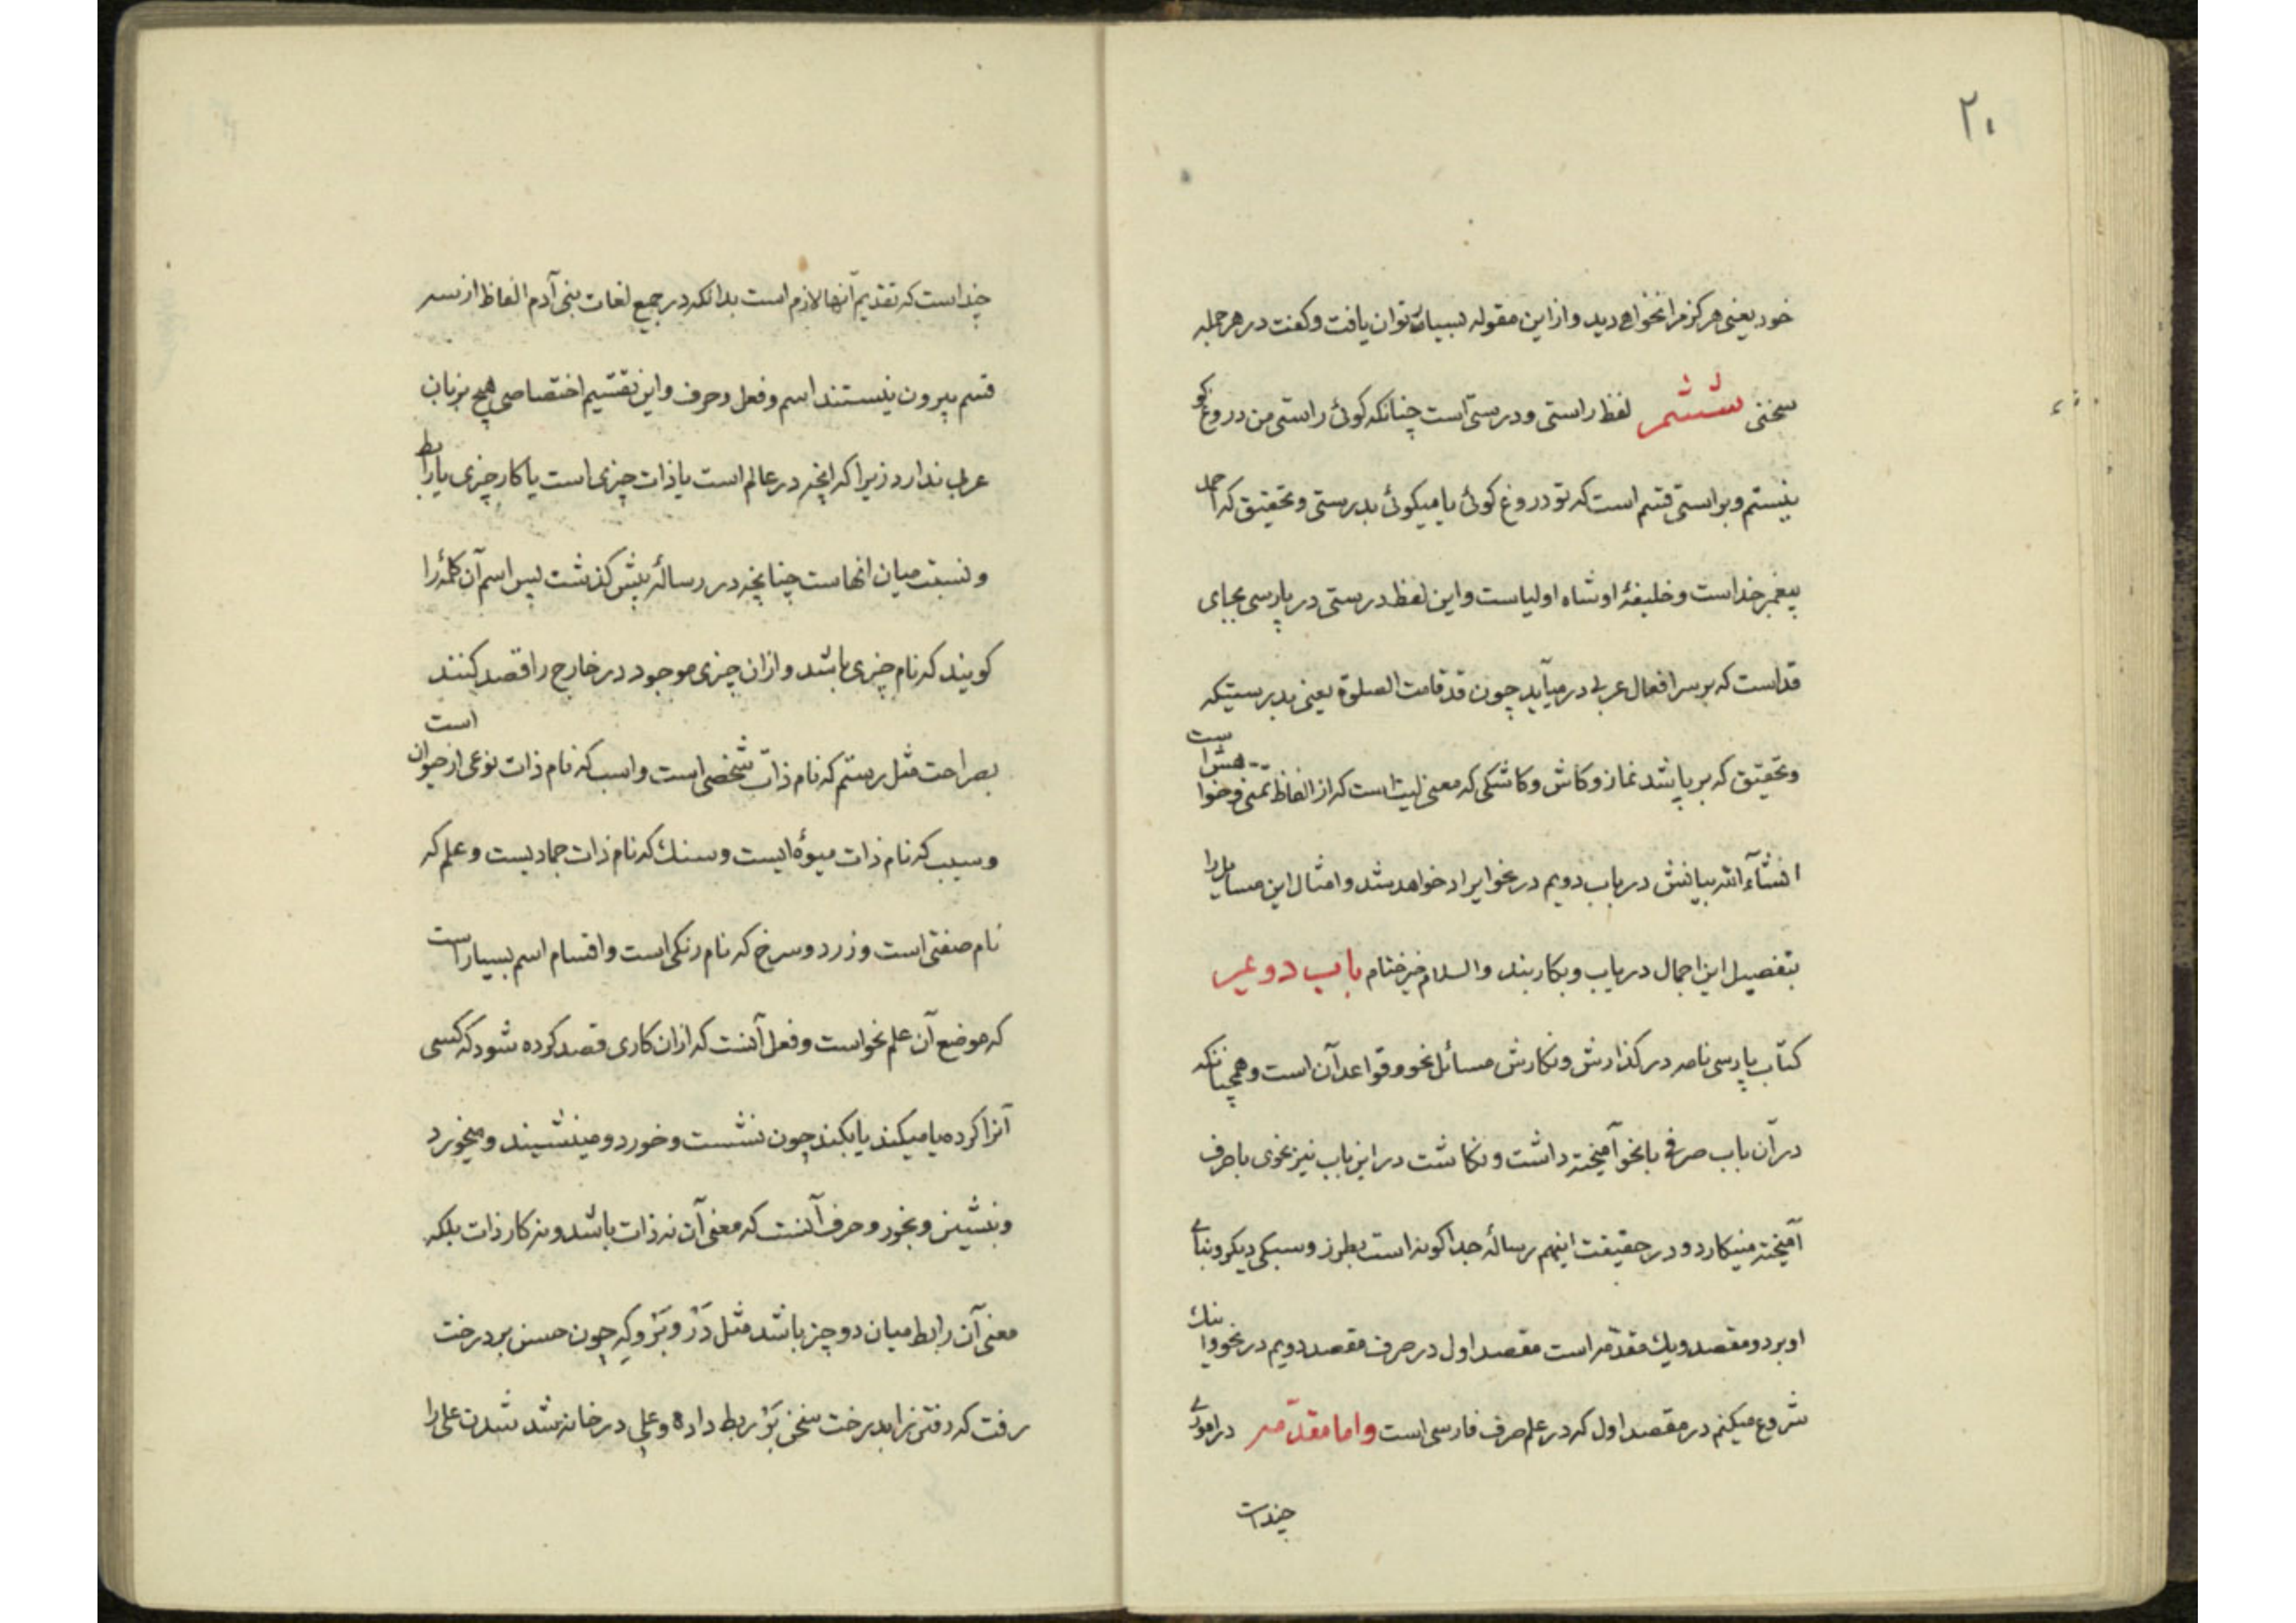 ۲۰
خود یعنی هرکز مرا نخواهی دید و از این مقوله بسیار توان یافت و کفت در هر جمله
سخنی ششم لفظ راستی و درستی است چنانکه کوئی راستی من دروغ کو
نیستم و براستی قسم است که تو دروغ کوئی یا میکوئی بدرستی و تحقیق که احمد
پیغمبر خداست و خلیفهٔ او شاه اولیاست و این لفظ درستی در پارسی بجای
قد است که بر سر افعال عربی در میآید چون قد قامت الصلوة یعنی بدرستیکه
و تحقیق که بر پا شد نماز و کاش و کاشکی که معنی لیت است که از الفاظ تمنی و خواهش است
انشآء الله بیانش در باب دویم در نحو ایراد خواهد شد و امثال این مسایل را
بتفصیل این اجمال دریاب و بکار بند والسلام خیر ختام باب دویم
کتاب پارسی نامه در کذارش و نکارش مسائل نحو و قواعد آن است و همچنانکه
در آن باب صرفی با نحو آمیخته داشت و نکاشت در این باب نیز نحوی با صرف
آمیخته مینکارد و در حقیقت اینهم رسالهٔ جداکونه است بطرز و سبکی دیکر و بنای
او بر دو مقصد و یک مقدّمه است مقصد اول در صرف مقصد دویم در نحو و اینک
شروع میکنم در مقصد اول که در علم صرف فارسی است و اما مقدّمه در اموری
چند است
چند است که تقدیم آنها لازم است بدانکه در جمیع لغات بنی آدم الفاظ از سه
قسم بیرون نیستند اسم و فعل و حرف و این تقسیم اختصاصی هیچ بزبان
عرب ندارد زیرا که انچه در عالم است یا ذات چیزی است یا کار چیزی یا رابط
و نسبت میان انهاست چنانچه در رسالهٔ پیش کذشت پس اسم آن کلمهٔ را
کویند که نام چیزی باشد و ازان چیزی موجود در خارج را قصد کنند
بصراحت مثل رستم که نام ذات شخصی است و اسب که نام ذات نوعی از حیوان است
و سیب که نام ذات میوهٔ ایست و سنک که نام ذات جمادیست و علم که
نام صفتی است و زرد و سرخ که نام رنکی است و اقسام اسم بسیار است
که موضع آن علم نحو است و فعل آنست که ازان کاری قصد کرده شود که کسی
آنرا کرده یا میکند یا بکند چون نشست و خورد و مینشیند و میخورد
و بنشین و بخور و حرف آنست که معنی آن نه ذات باشد و نه کار ذات بلکه
معنی آن رابط میان دو چیز باشد مثل دَر و بَر و کِه چون حسن بر درخت
رفت که رفتن را بدرخت سخن بَر ربط داده و علی در خانه شد شدن علی را